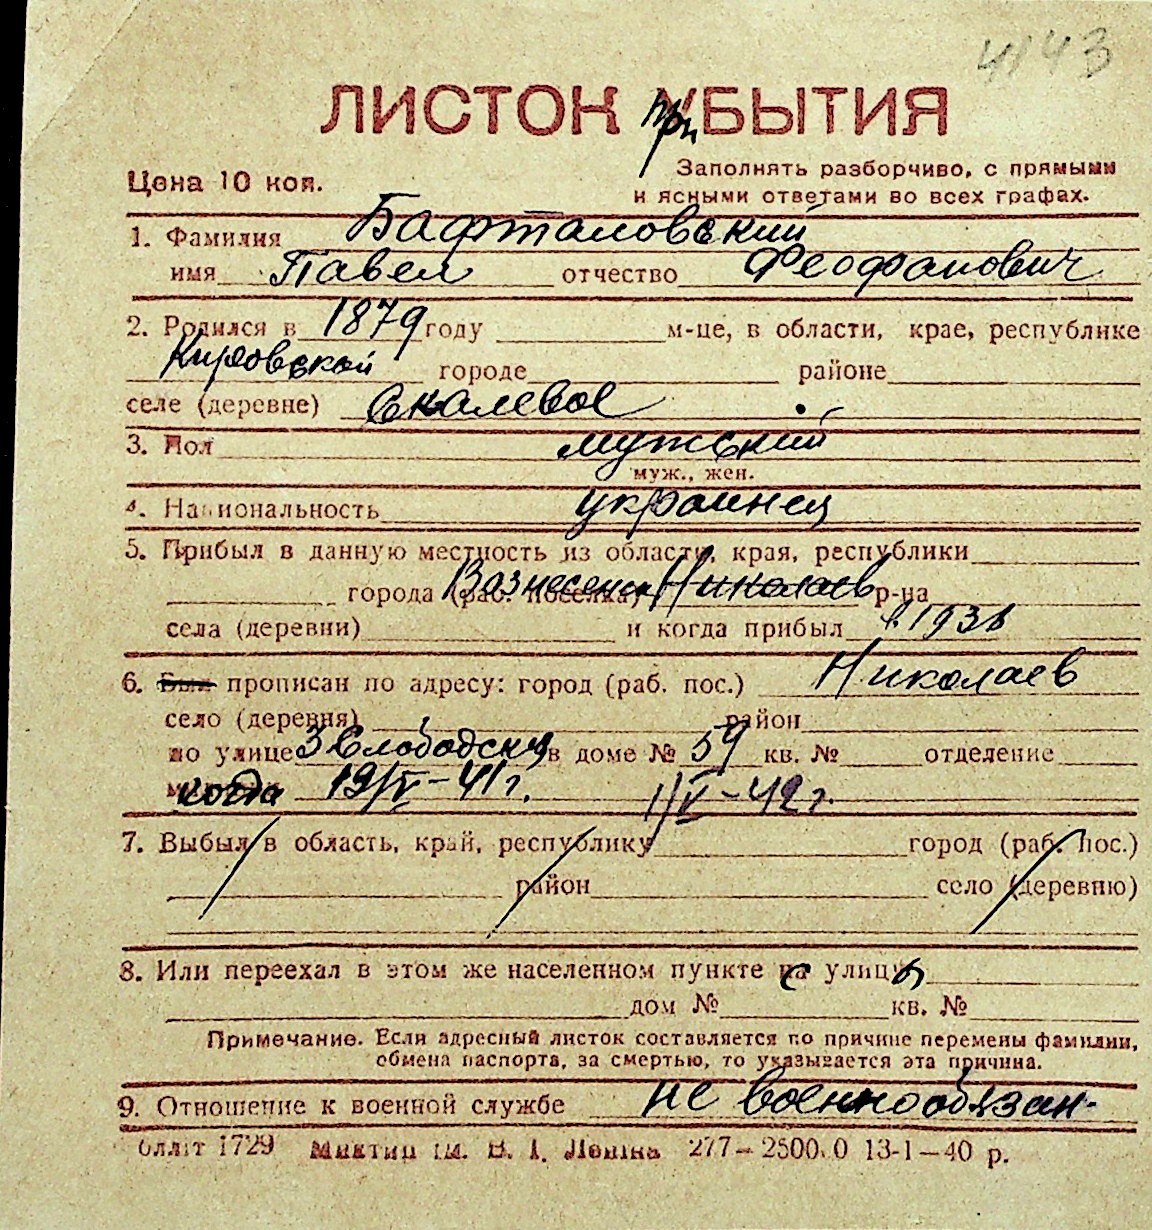 4143
ЛИСТОК УБЫТИЯ
при
Заполнять разборчиво, с прямыми
Цена 10 коп.
и ясными ответами во всех графах.
1. Фамилия Бафталовский
имя Павел отчество Феофанович
2. Родился в 1879 году м-це, в области, крае, республике
Кировской городе районе
селе (деревне) Скалевое
3. Пол мужский
муж., жен.
4. Национальность украинец
5. Прибыл в данную местность из области, края, республики
города (раб. поселка) Вознесенск Николаев р-на
села (деревни) и когда прибыл в 193
6. Был прописан по адресу: город (раб. пос.) Николаев
село (деревня) район
по улице 3 Слободская в доме № 59 кв. № отделение
когда 19/V-41 г. 1/V-42 г.
7. Выбыл в область, край, республику город (раб. пос.)
район село (деревню)
8. Или переехал в этом же населенном пункте с улицы
дом № кв. №
Примечание. Если адресный листок составляется по причине перемены фамилии,
обмена паспорта, за смертью, то указывается эта причина.
9. Отношение к военной службе не военнообязан-
1729 им. В. І. Леніна 277—2500.0 13-1—40 р.